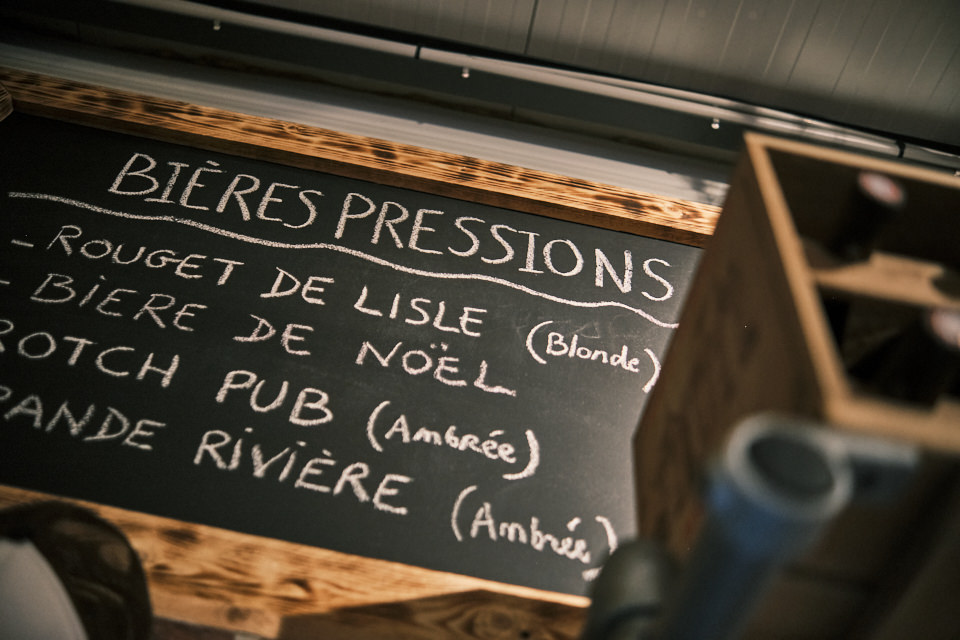 BIÈRES PRESSIONS
- ROUGET DE LISLE (Blonde)
- BIERE DE NOËL
ROTCH PUB (Ambrée)
RANDE RIVIÈRE (Ambrée)